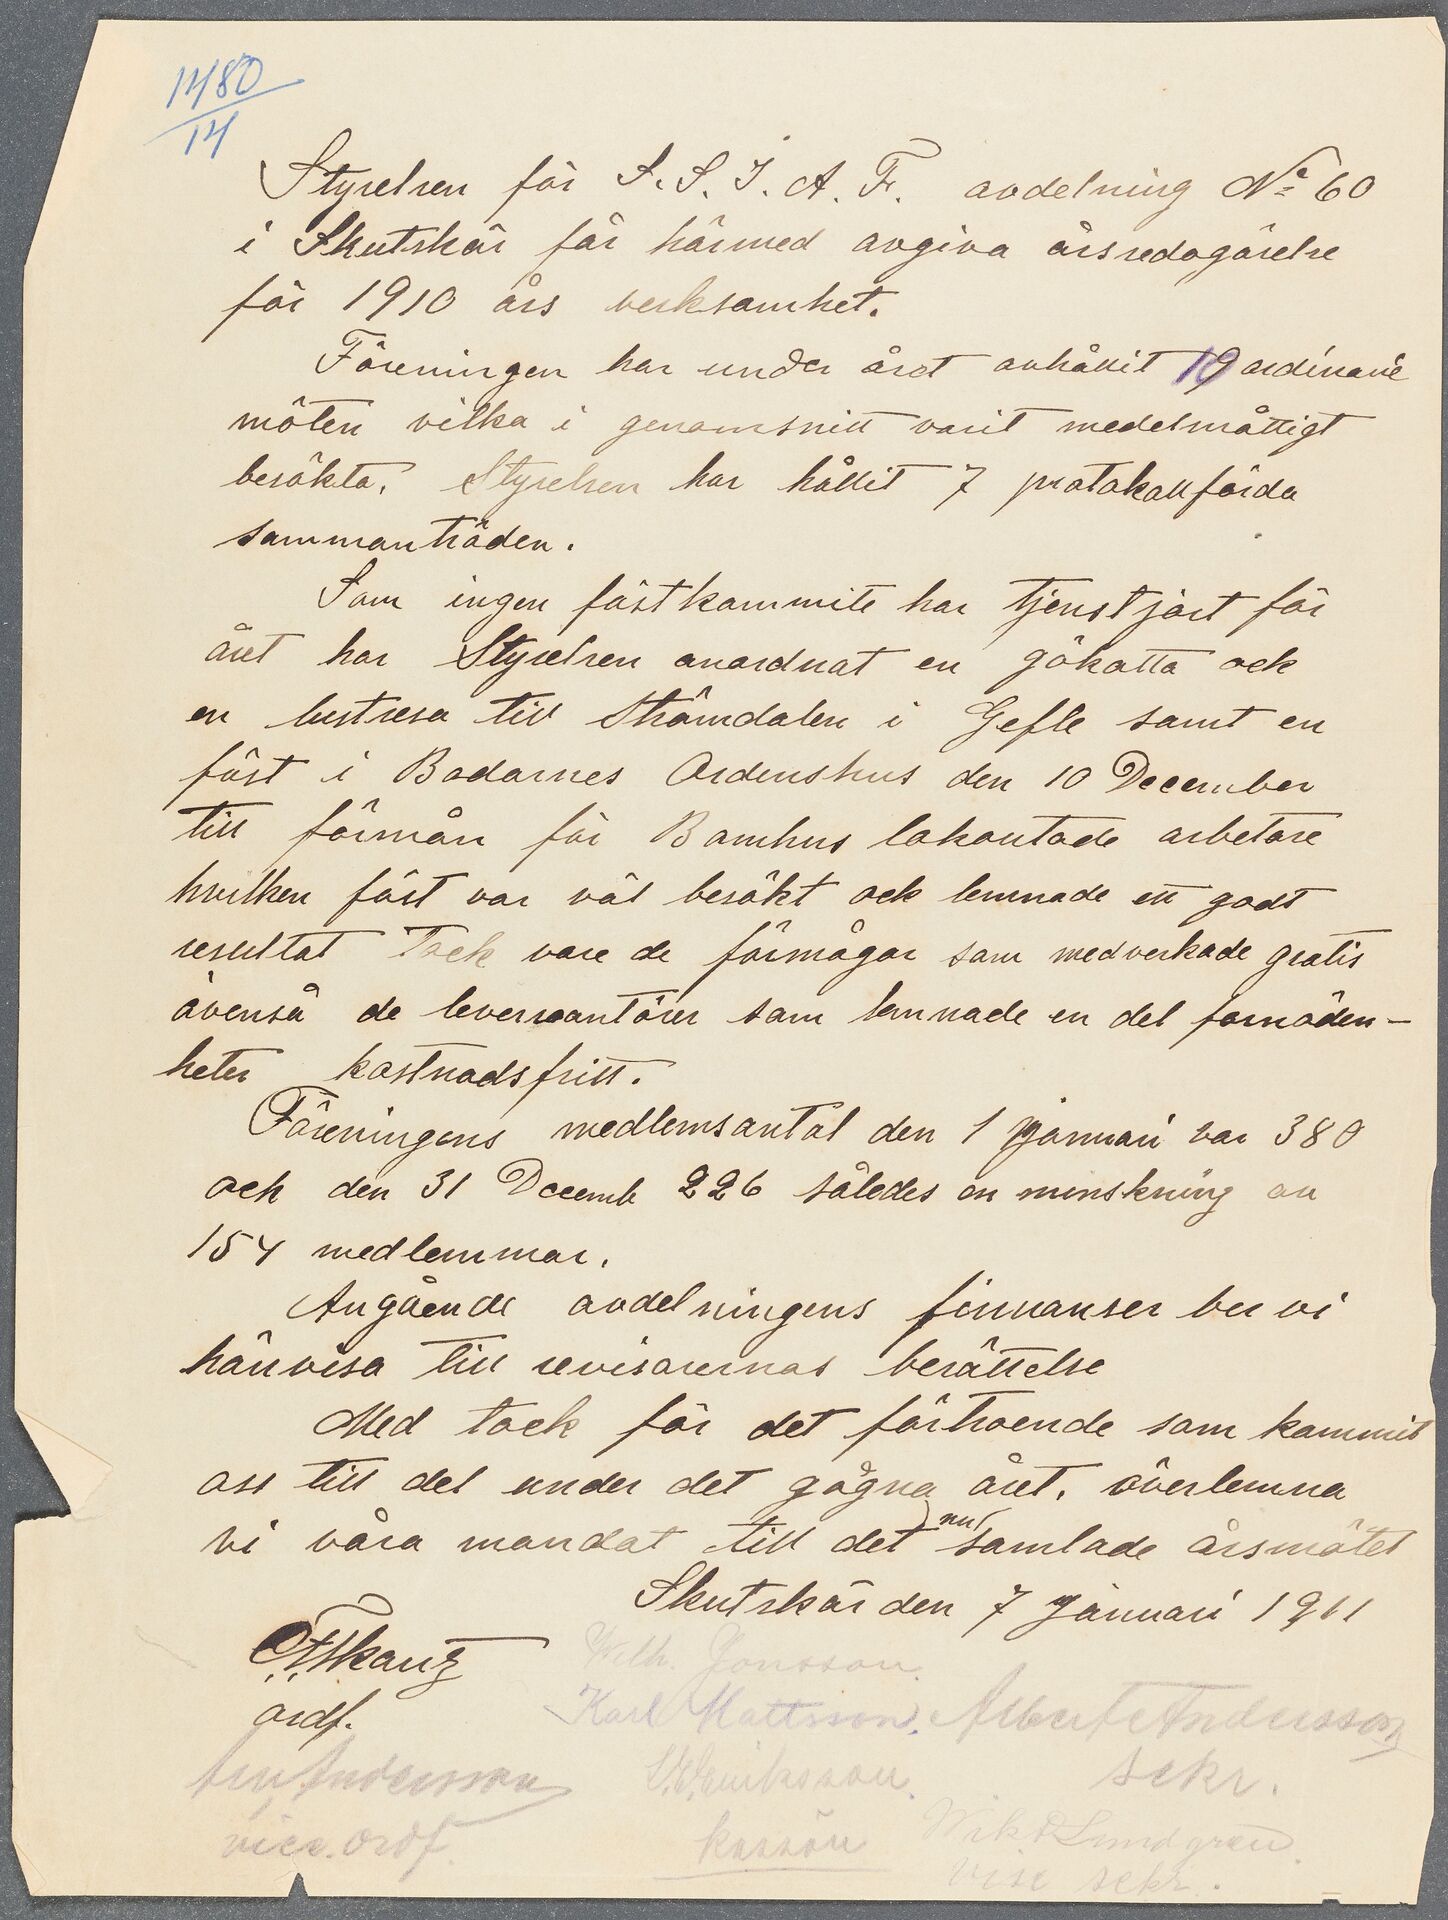 1480
14
Styrelsen för S. S. I. A. F. avdelning No 60
i Skutskär får härmed avgiva årsredogörelse
för 1910 års verksamhet.
Föreningen har under året avhållit 19 ordinarie
möten vilka i genomsnitt varit medelmåttigt
besökta. Styrelsen har hållit 7 protokollförda
sammanträden.
Som ingen fästkommite har tjenstjort för
året har Styrelsen anordnat en gökotta ock
en lustresa till Strömdalen i Gefle samt en
fäst i Bodarnes Ordenshus den 10 December
till förmån för Bomhus lokoutade arbetare
hvilken fäst var väl besökt ock lemnade ett godt
resultat Tack vare de förmågor som medverkade gratis
ävenså de leverantörer som lemnade en del fornöden-
heter kostnadsfritt.
Föreningens medlemsantal den 1 januari var 380
ock den 31 Decemb 226 således en minskning av
154 medlemmar.
Angående avdelningens finnanser ber vi
hänvisa till revisorernas berättelse
Med tack för det förtroende som kommit
oss till del under det gågna året, överlemna
vi våra mandat till det nu samlade årsmötet
Skutskär den 7 januari 1911
Wilh. Jonsson.
ordf. Karl Mattsson. Albert Andersson
Andersson Eriksson. sekr.
vice. ordf. kassör Lundgren.
vise sekr.